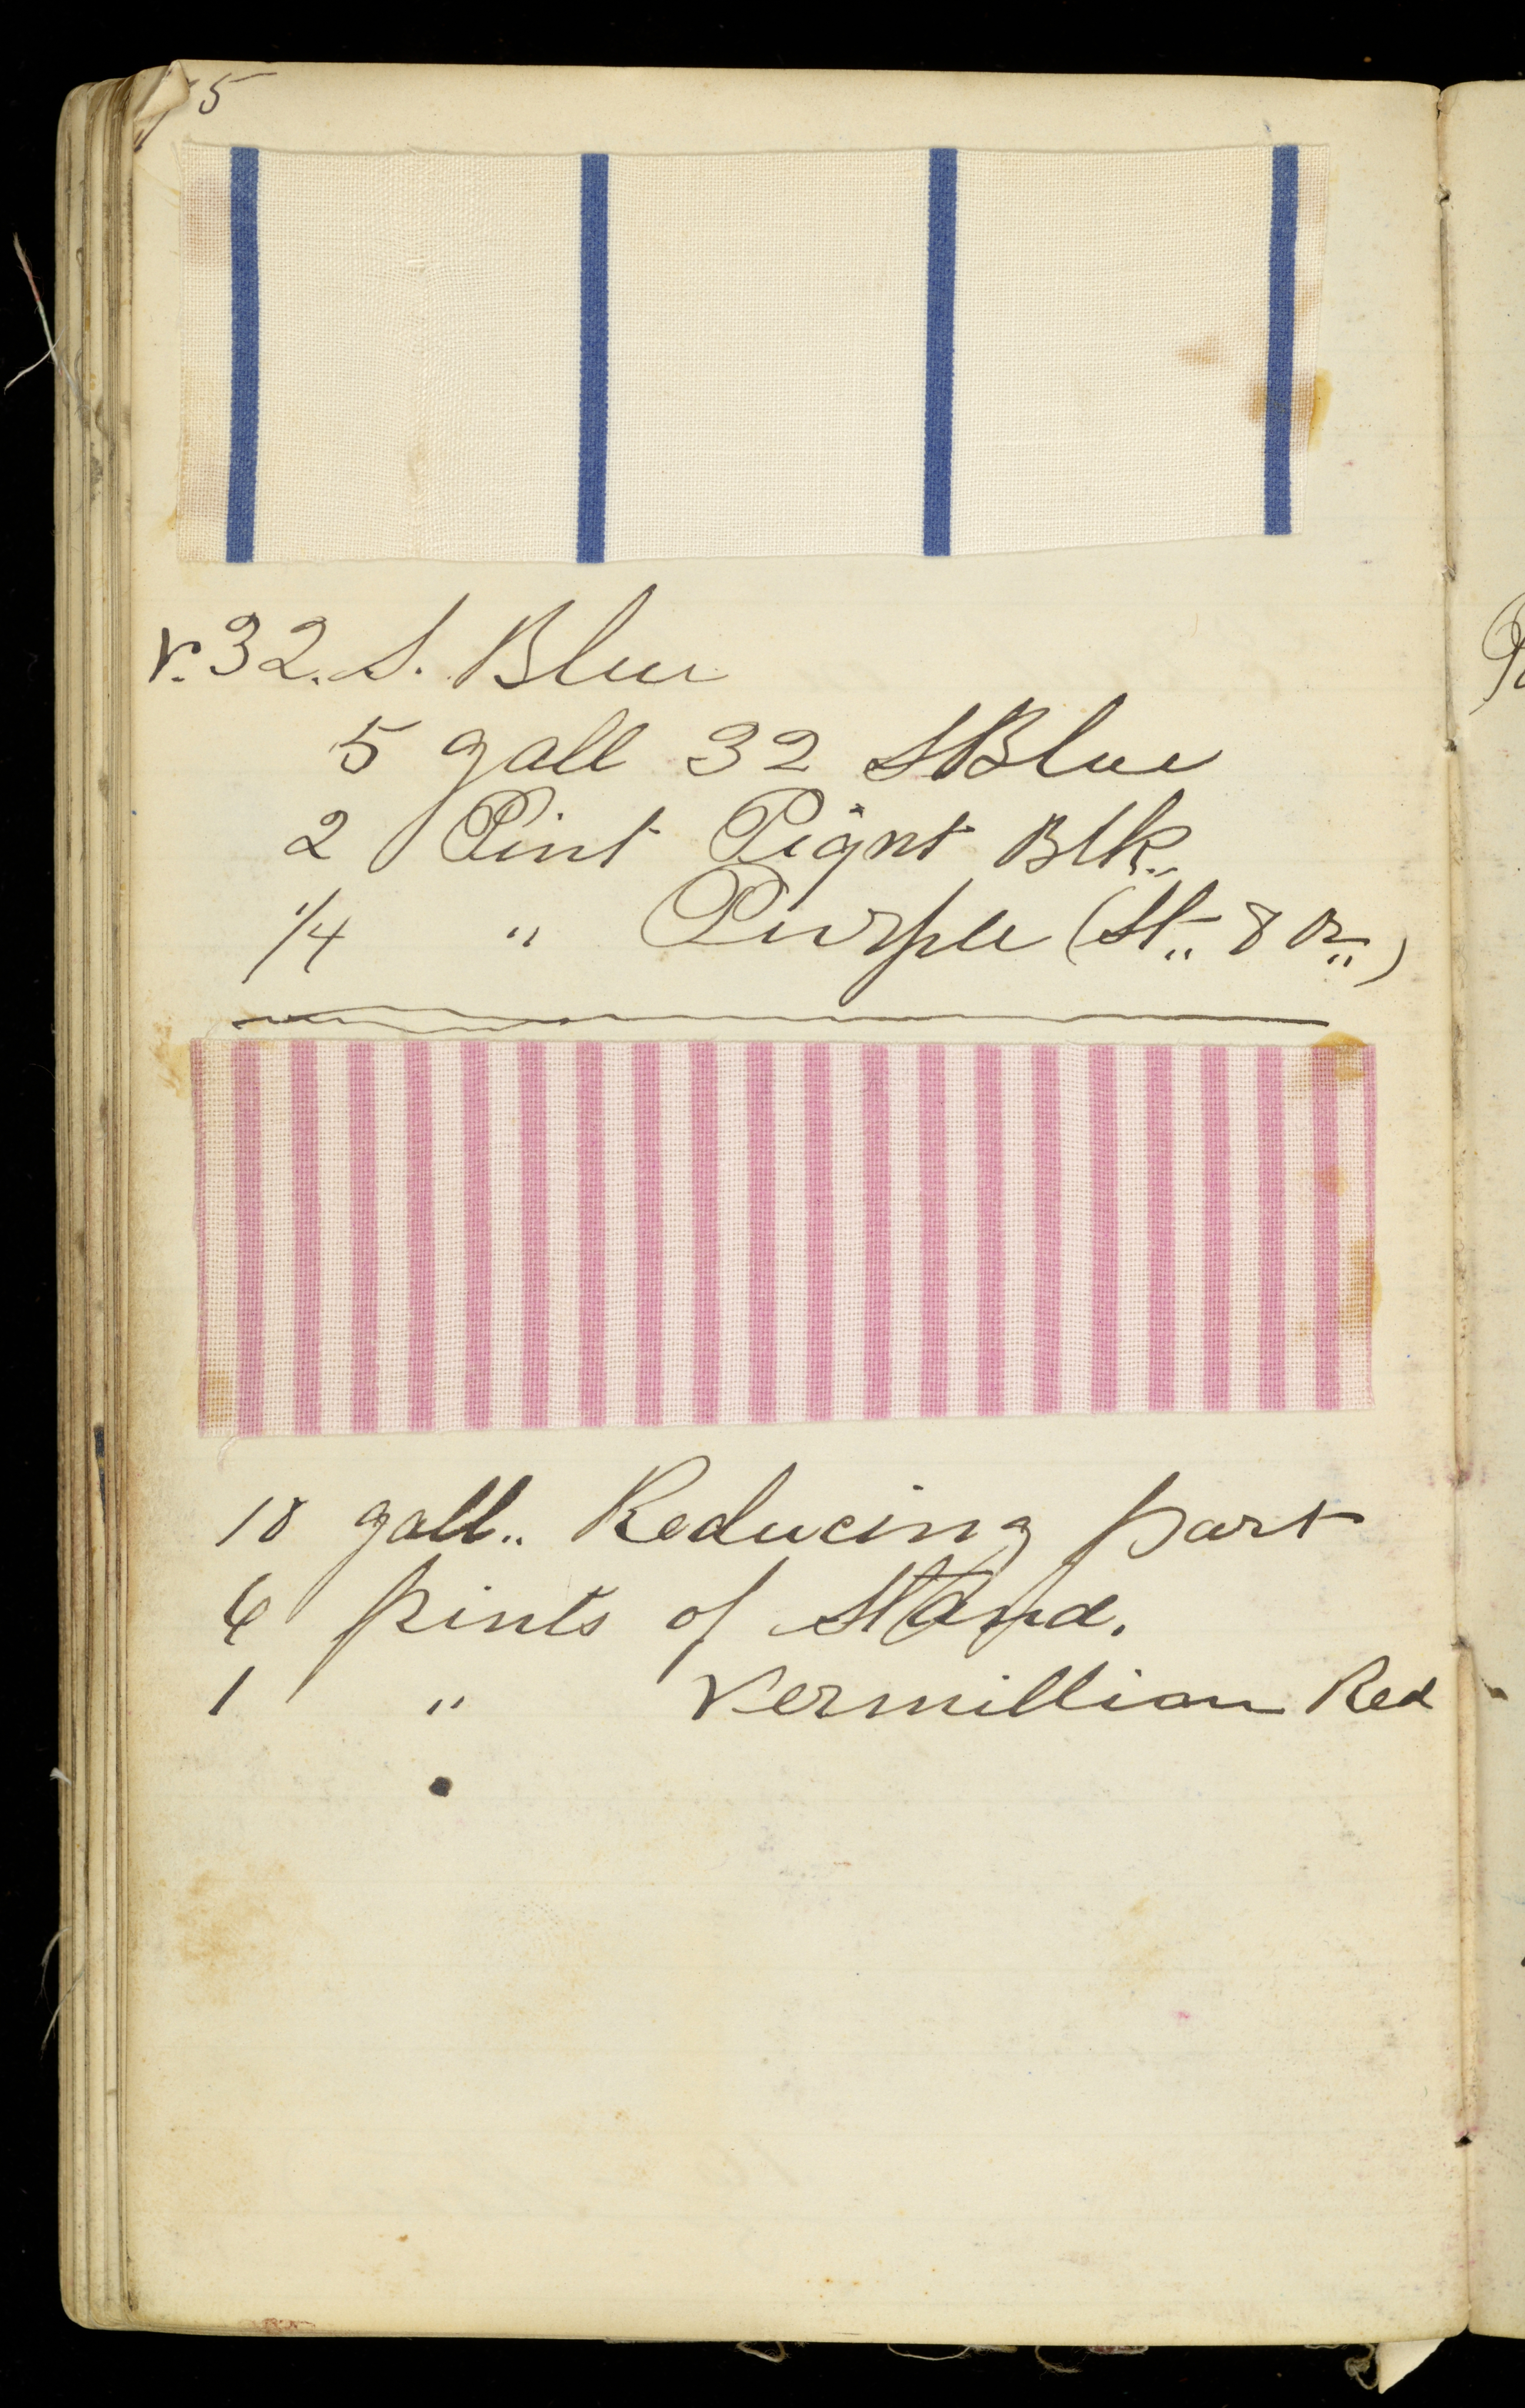 5
r. 32. S. Blue
5 gall 32 S Blue
2 Pint Pigmt Blk.
1/4 " Purple (St. 8 oz.)
10 gall.. Reducing part
6 pints of Stand.
1 " Vermillion Red